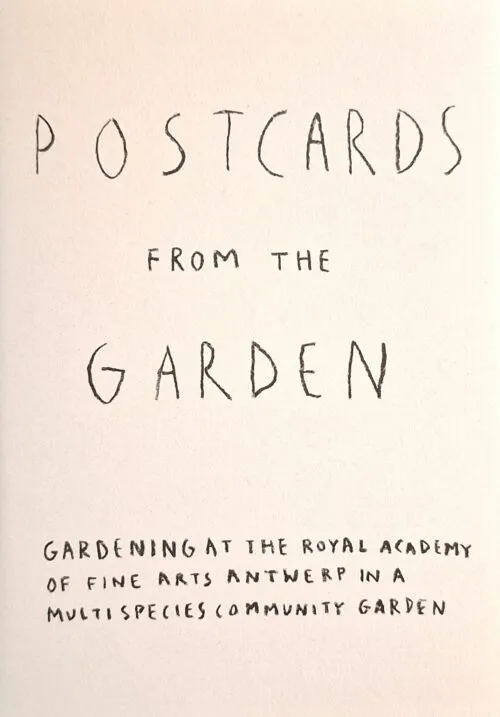 POSTCARDS
FROM THE
GARDEN
GARDENING AT THE ROYAL ACADEMY
OF FINE ARTS ANTWERP IN A
MULTISPECIES COMMUNITY GARDEN